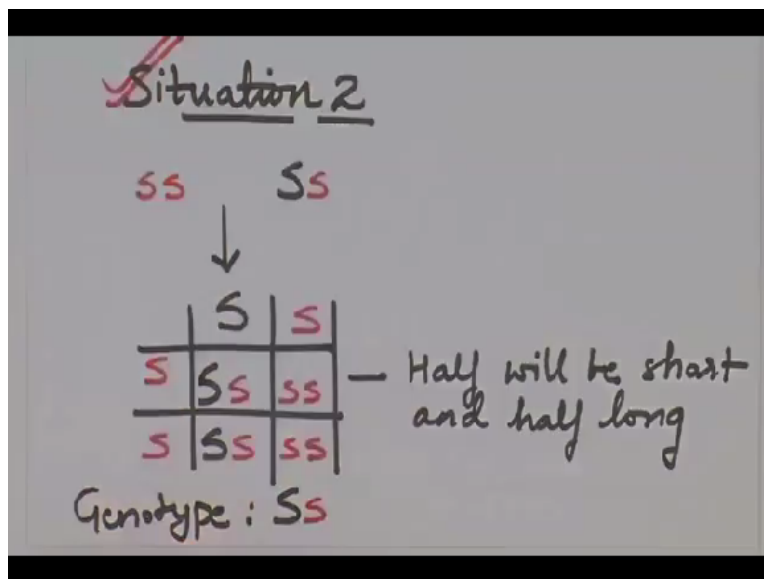 Situation 2
ss Ss
S s
s Ss ss — Half will be short
and half long
s Ss ss
Genotype : Ss